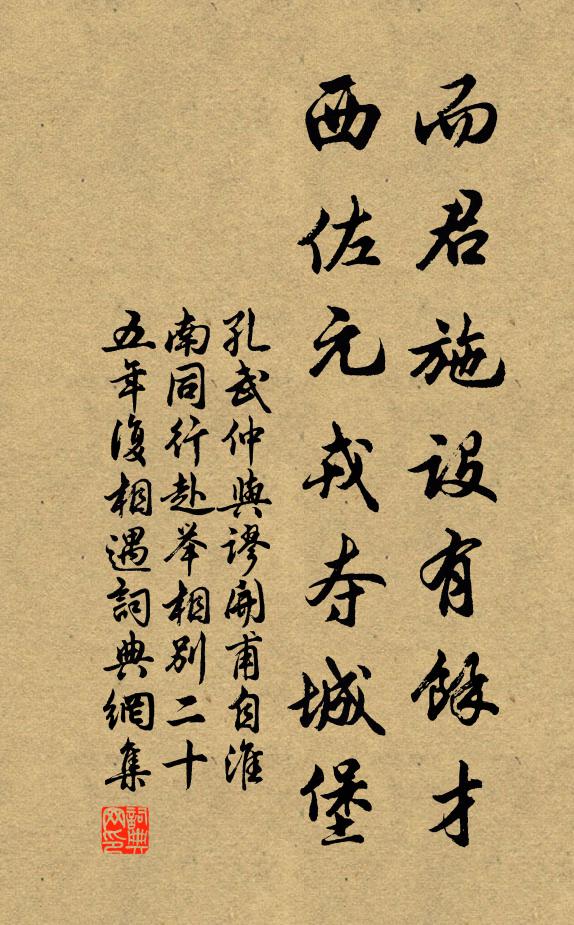 而君施設有餘才
西佐元戎夺城堡
孔武仲與謬開甫自淮
南同行赴举相别二十
五年復相遇詞典網集
詞典网印